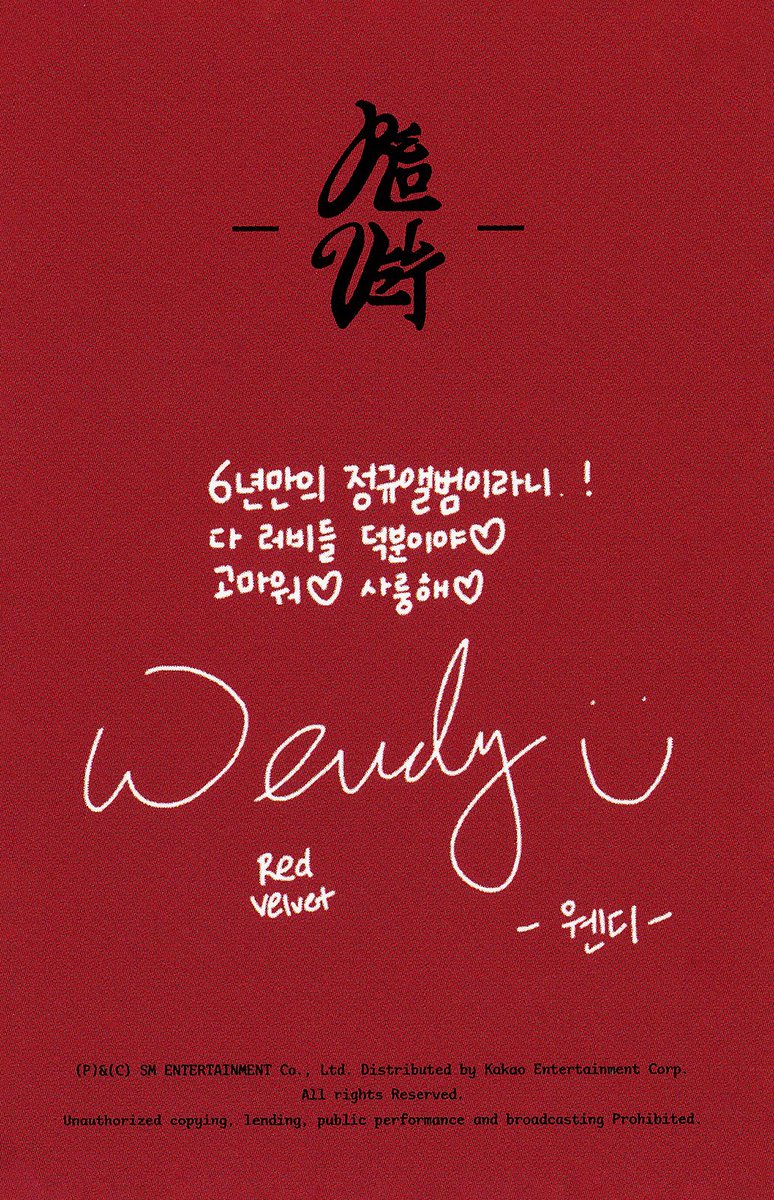 6년만의 정규앨범이라니..!
다 러비들 덕분이야♡
고마워♡ 사룽해♡
Wendy
Red
Velvet
- 웬디 -
(P)&(C) SM ENTERTAINMENT Co., Ltd. Distributed by Kakao Entertainment Corp.
All rights Reserved.
Unauthorized copying, lending, public performance and broadcasting Prohibited.